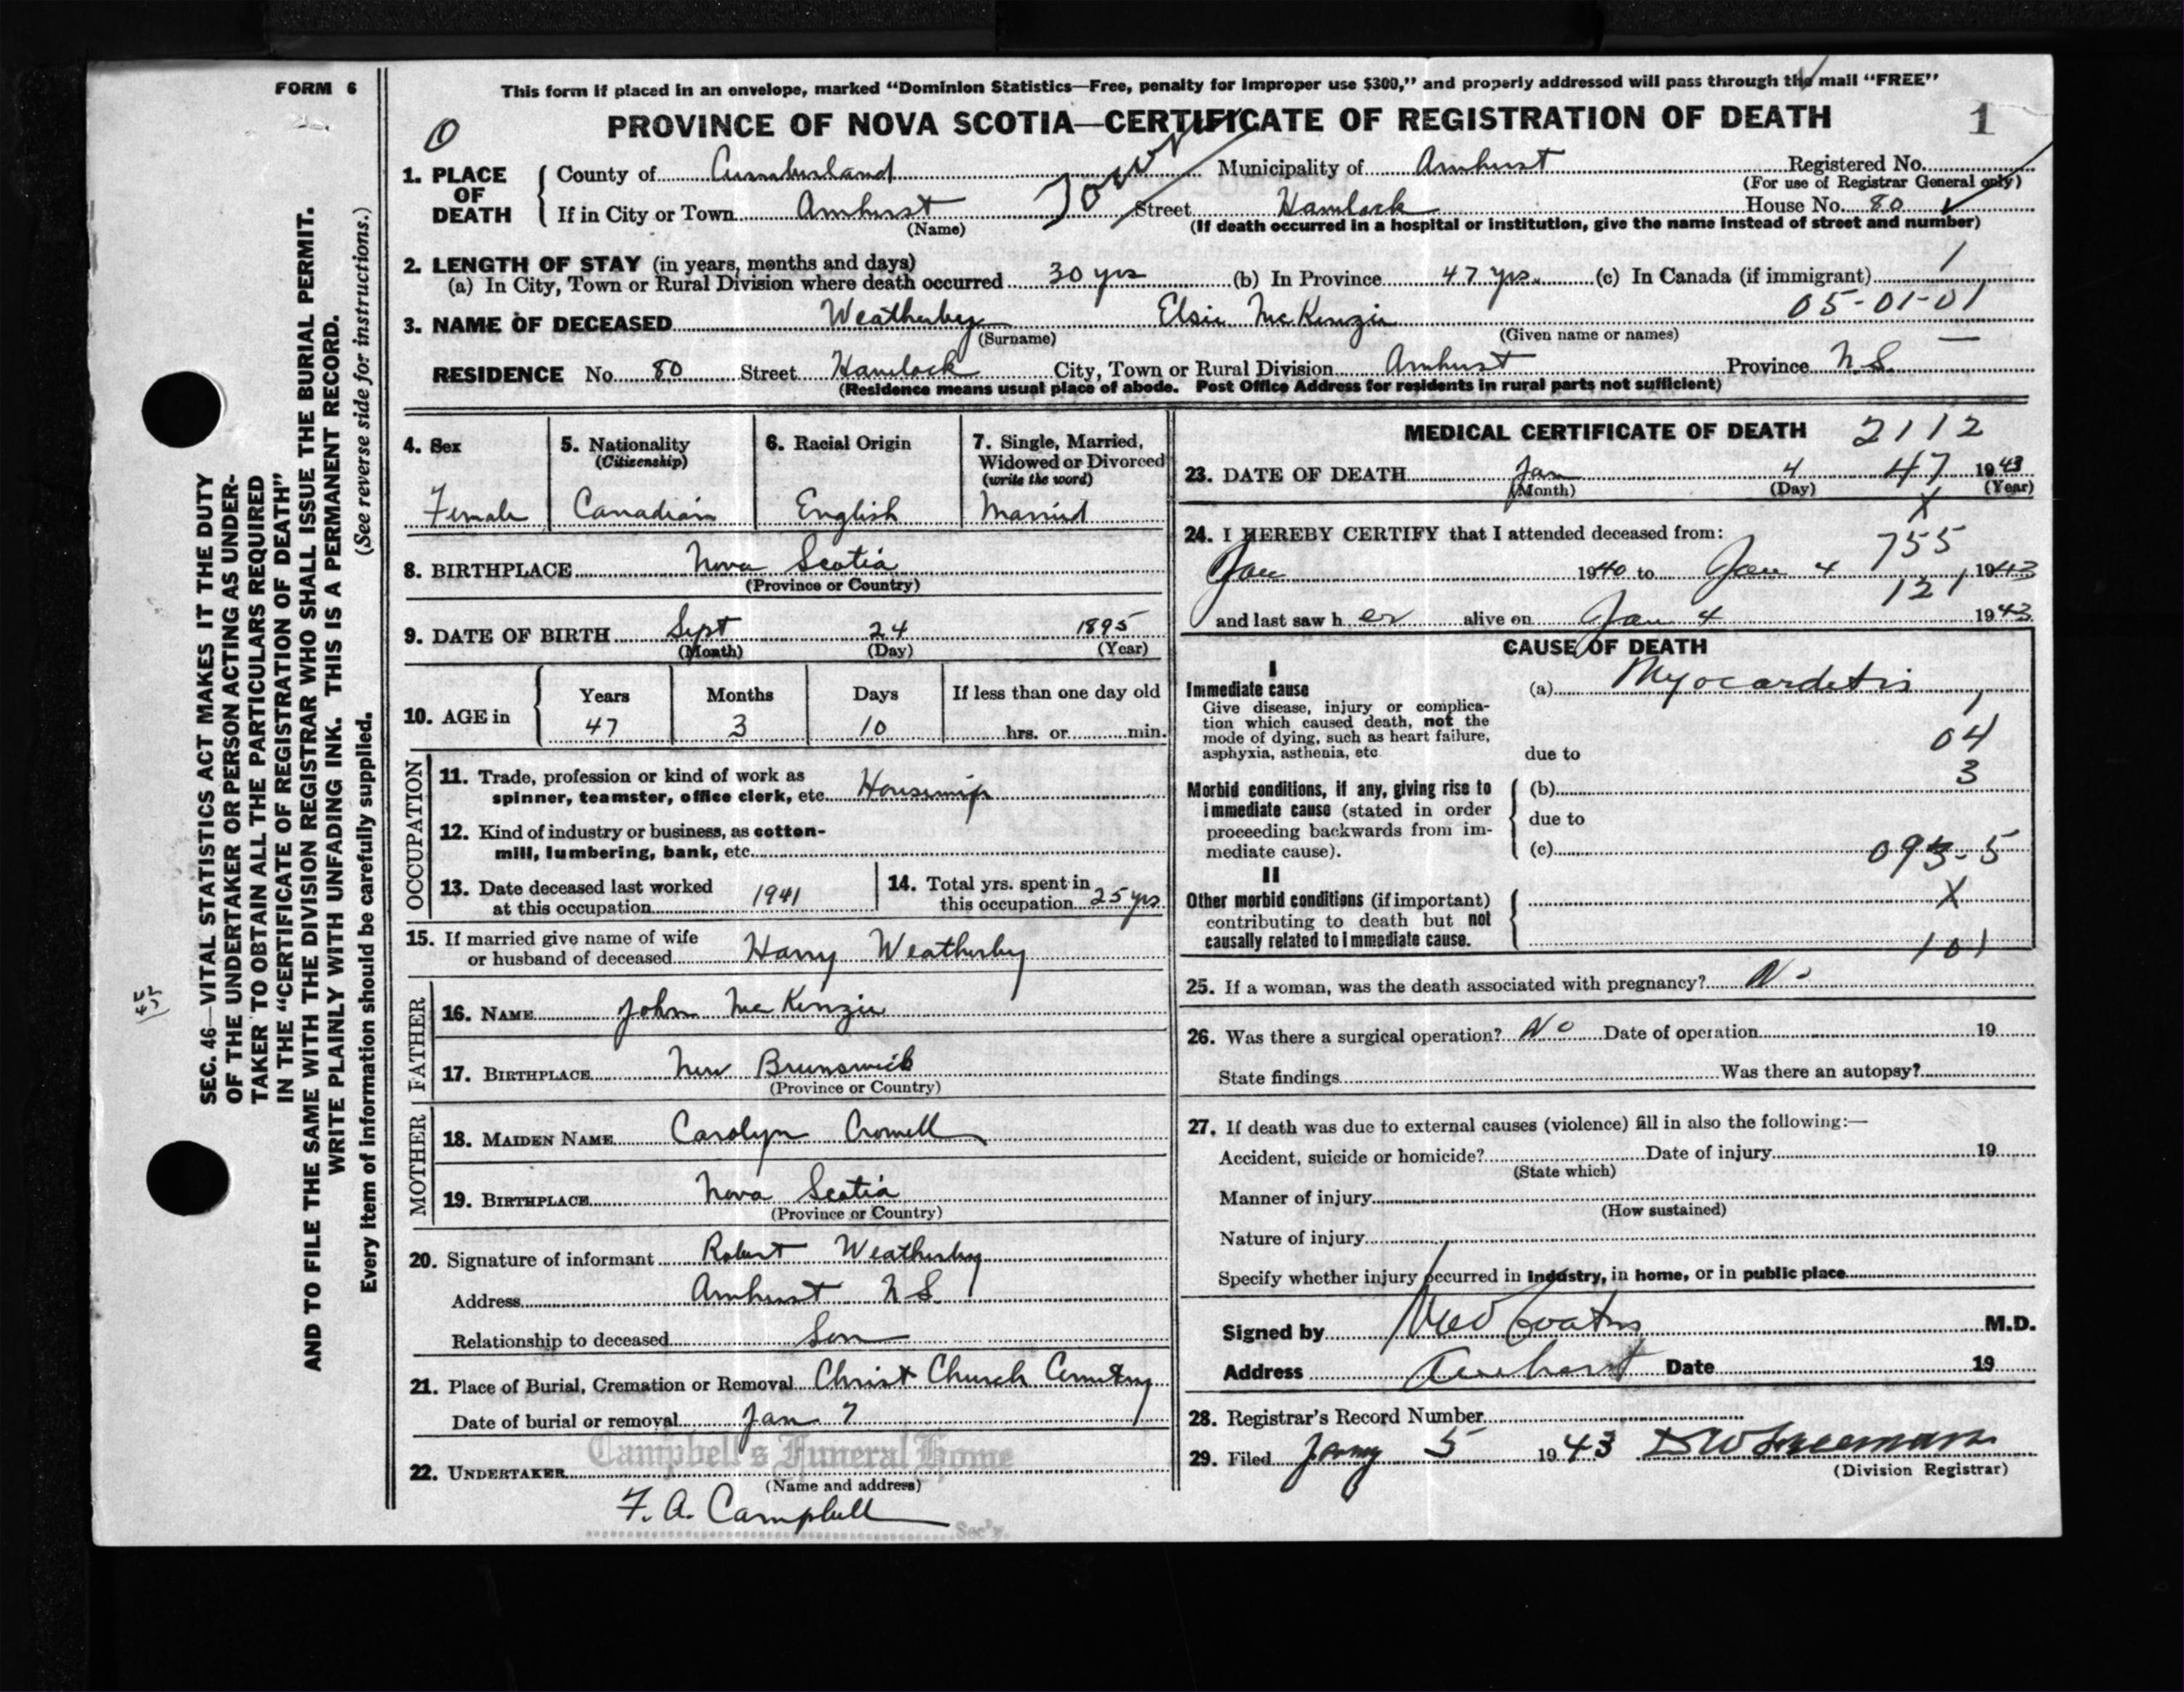 FORM 6
This form if placed in an envelope, marked “Dominion Statistics—Free, penalty for improper use $300,” and properly addressed will pass through the mail “FREE”
PROVINCE OF NOVA SCOTIA—CERTIFICATE OF REGISTRATION OF DEATH 1
O
1. PLACE OF DEATH
County of Cumberland Municipality of Amherst Registered No.
(For use of Registrar General only)
If in City or Town Amherst Town Street Hamlock House No. 80
(Name) (If death occurred in a hospital or institution, give the name instead of street and number)
2. LENGTH OF STAY (in years, months and days) 1
(a) In City, Town or Rural Division where death occurred 30 yrs (b) In Province 47 yrs. (c) In Canada (if immigrant)
05-01-01
3. NAME OF DECEASED Weatherby Elsie McKenzie
(Surname) (Given name or names)
RESIDENCE No. 80 Street Hamlock City, Town or Rural Division Amherst Province N.S.
(Residence means usual place of abode. Post Office Address for residents in rural parts not sufficient)
4. Sex
Female
5. Nationality
(Citizenship)
Canadian
6. Racial Origin
English
7. Single, Married,
Widowed or Divorced
(write the word)
Married
8. BIRTHPLACE Nova Scotia
(Province or Country)
9. DATE OF BIRTH Sept 24 1895
(Month) (Day) (Year)
10. AGE in
Years Months Days If less than one day old
47 3 10 hrs. or min.
OCCUPATION
11. Trade, profession or kind of work as
spinner, teamster, office clerk, etc. Housewife
12. Kind of industry or business, as cotton-
mill, lumbering, bank, etc.
13. Date deceased last worked
at this occupation 1941
14. Total yrs. spent in
this occupation 25 yrs
15. If married give name of wife
or husband of deceased Harry Weatherby
FATHER
16. NAME John McKenzie
17. BIRTHPLACE New Brunswick
(Province or Country)
MOTHER
18. MAIDEN NAME Carolyn Crowell
19. BIRTHPLACE Nova Scotia
(Province or Country)
20. Signature of informant Robert Weatherby
Address Amherst N S.
Relationship to deceased Son
21. Place of Burial, Cremation or Removal Christ Church Cemetery
Date of burial or removal Jan 7
Campbell's Funeral Home
22. UNDERTAKER
(Name and address)
F. A. Campbell
Sec'y.
MEDICAL CERTIFICATE OF DEATH 2112
23. DATE OF DEATH Jan 4 47 1943
(Month) (Day) (Year)
X
24. I HEREBY CERTIFY that I attended deceased from:
755
Jan 1940 to Jan 4 1943
121
and last saw h er alive on Jan 4 1943
CAUSE OF DEATH
I
Immediate cause
Give disease, injury or complica-
tion which caused death, not the
mode of dying, such as heart failure,
asphyxia, asthenia, etc
(a) Myocardetis
1
due to 04
3
Morbid conditions, if any, giving rise to
immediate cause (stated in order
proceeding backwards from im-
mediate cause).
(b)
due to
(c) 093-5
II
Other morbid conditions (if important)
contributing to death but not
causally related to immediate cause.
X
101
25. If a woman, was the death associated with pregnancy? No
26. Was there a surgical operation? No Date of operation 19
State findings Was there an autopsy?
27. If death was due to external causes (violence) fill in also the following:—
Accident, suicide or homicide? Date of injury 19
(State which)
Manner of injury
(How sustained)
Nature of injury
Specify whether injury occurred in Industry, in home, or in public place
Signed by M.D.
Address Amherst Date 19
28. Registrar's Record Number
29. Filed Jany 5 1943
(Division Registrar)
SEC. 46—VITAL STATISTICS ACT MAKES IT THE DUTY
OF THE UNDERTAKER OR PERSON ACTING AS UNDER-
TAKER TO OBTAIN ALL THE PARTICULARS REQUIRED
IN THE “CERTIFICATE OF REGISTRATION OF DEATH”
AND TO FILE THE SAME WITH THE DIVISION REGISTRAR WHO SHALL ISSUE THE BURIAL PERMIT.
WRITE PLAINLY WITH UNFADING INK. THIS IS A PERMANENT RECORD.
(See reverse side for instructions.)
Every item of information should be carefully supplied.